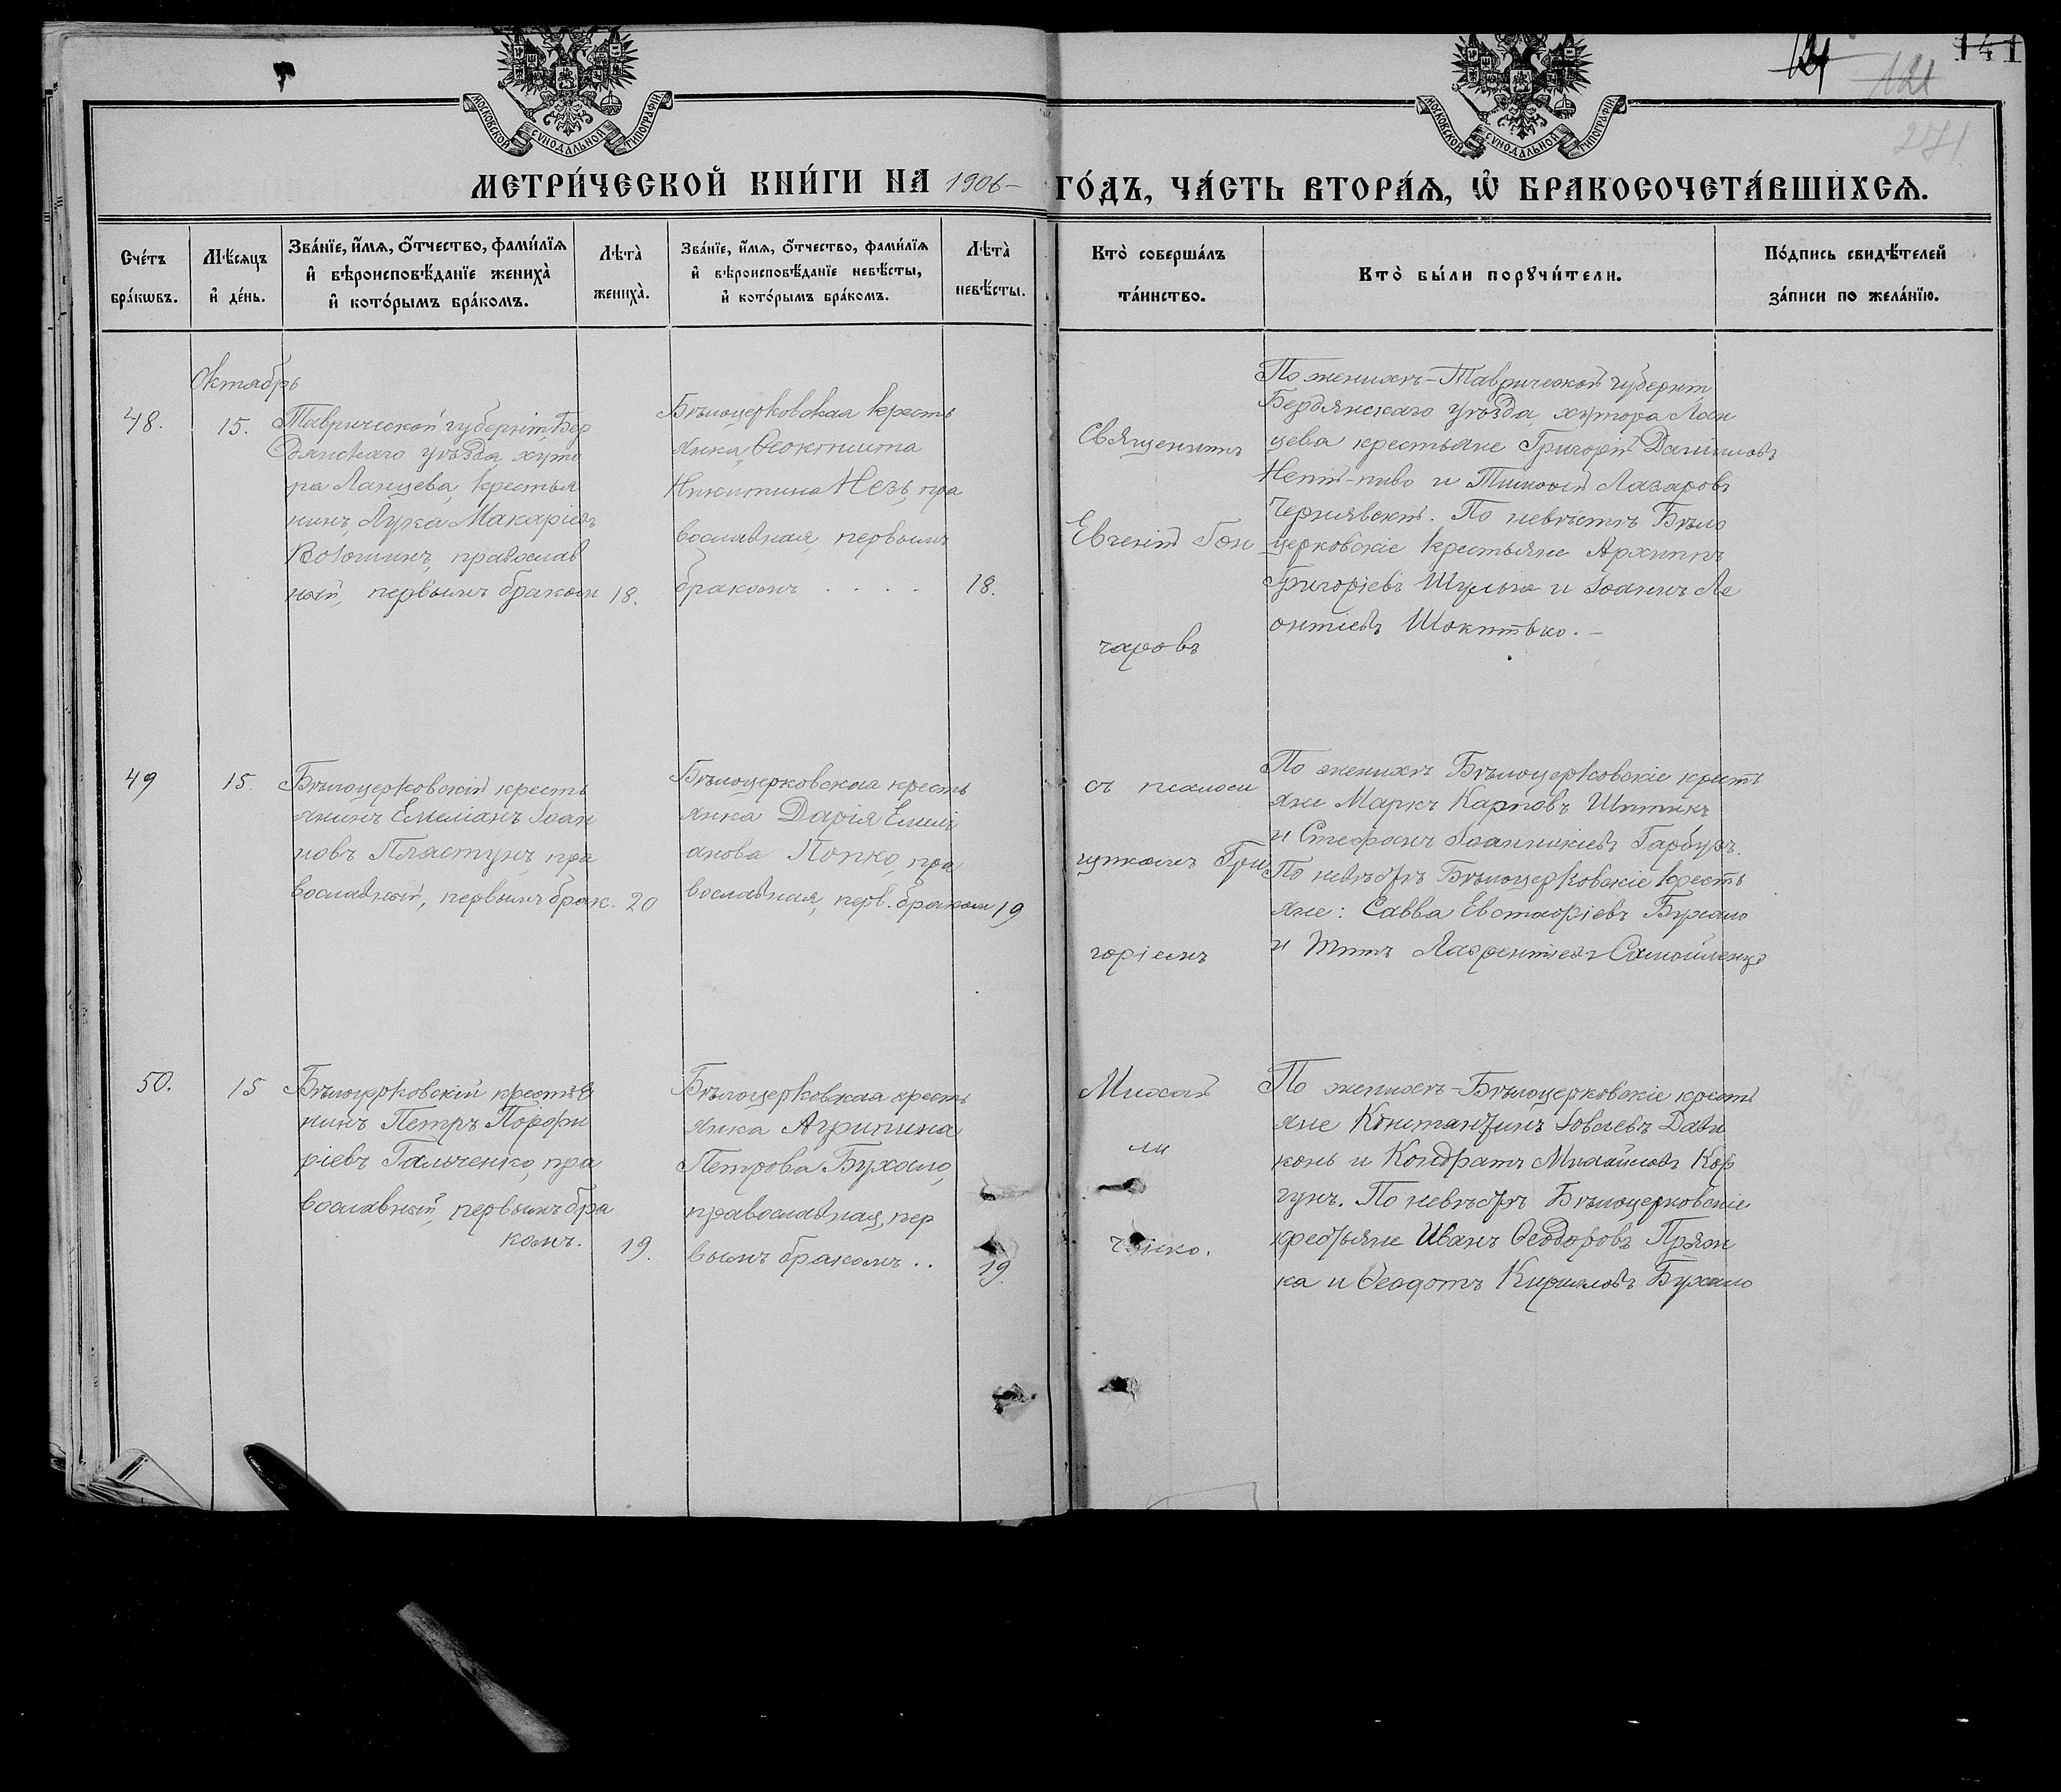 МОСКОВСКОЙ СУНОДАЛЬНОЙ ТИПОГРАФІИ
МОСКОВСКОЙ СУНОДАЛЬНОЙ ТИПОГРАФІИ
121
121
141
271
МЕТРИ́ЧЕСКОЙ КНИ́ГИ НА 1906 ГО́ДЪ, ЧА́СТЬ ВТОРА́Ѧ, Ѽ БРАКОСОЧЕТА́ВШИХСѦ.
Сче́тъ
бра́кѡвъ.
Мѣ́сяцъ
и҆ де́нь.
Зва́нїе, и҆́мѧ, ѻ҆́тчество, фами́лїѧ
и҆ вѣроисповѣ́данїе жениха̀
и҆ кото́рымъ бра́комъ.
Лѣта̀
жениха̀.
Зва́нїе, и҆́мѧ, ѻ҆́тчество, фами́лїѧ
и҆ вѣроисповѣ́данїе невѣ́сты,
и҆ кото́рымъ бра́комъ.
Лѣта̀
невѣ́сты.
Кто̀ соверша́лъ
та́инство.
Кто̀ бы́ли порꙋчи́тели.
По́дпись свидѣ́телей
за́писи по жела́нїю.
Октябрь
48.
15.
Таврической губерніи, Бер
дянскаго уѣзда, хуто
ра Ланцева, крестья
нинъ, Лука Макаріевъ
православ
ный, первымъ бракомъ
18.
Бѣлоцерковская кресть
янка, Ѳеоктиста
Никитина Незъ, пра
вославная, первымъ
бракомъ . . . .
18.
Священникъ
Евгеній Гон
чаровъ
По женихѣ - Таврической губерніи
Бердянскаго уѣзда, хутора Лан
цева крестьяне Григорій Данииловъ
Непій-пиво и Тимоѳей Лазаровъ
Чернявскій. По невѣстѣ Бѣло
церковскіе крестьяне Архиппъ
Григоріевъ Шульга и Іоаннъ Ле
онтіевъ
49
15.
Бѣлоцерковскій кресть
янинъ Емеліанъ Іоан
новъ Пластунъ, пра
вославный, первымъ брак.
20
Бѣлоцерковская кресть
янка Дарія Емелі
анова Попко, пра
вославная, перв. бракомъ
19
съ псалом
щикомъ Гри
горіемъ
По женихѣ Бѣлоцерковскіе кресть
яне Маркъ Карповъ
и Стефанъ Іоанникіевъ Гарбузъ.
По невѣстѣ Бѣлоцерковскіе кресть
яне: Савва Евстафіевъ Бухало
и Титъ Лаврентіевъ Самойленко
50.
15
Бѣлоцерковскій крестья
нинъ Петръ Порфи
ріевъ Гальченко, пра
вославный, первымъ бра
комъ.
19.
Бѣлоцерковская кресть
янка Агрипина
Петрова Бухало,
православная, пер
вымъ бракомъ . .
19.
Михай
ли
ченко.
По женихѣ - Бѣлоцерковскіе кресть
яне Константинъ Іовлевъ
и Кондратъ Михайловъ Кор
гунъ. По невѣстѣ Бѣлоцерковскіе
крестьяне Иванъ Ѳеодоровъ Пряж
ка и Ѳеодотъ Кирилловъ Бухало